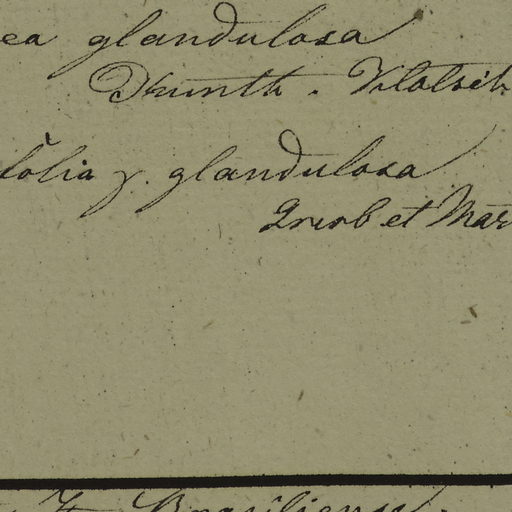 ea glandulosa
Kunth. Klotsch
folia γ. glandulosa
Zucb et Mar
Brasiliens.